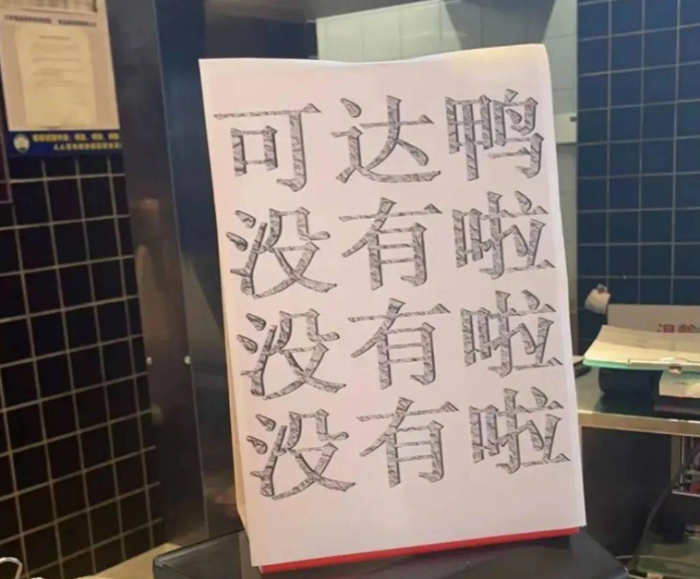 可达鸭
没有啦
没有啦
没有啦